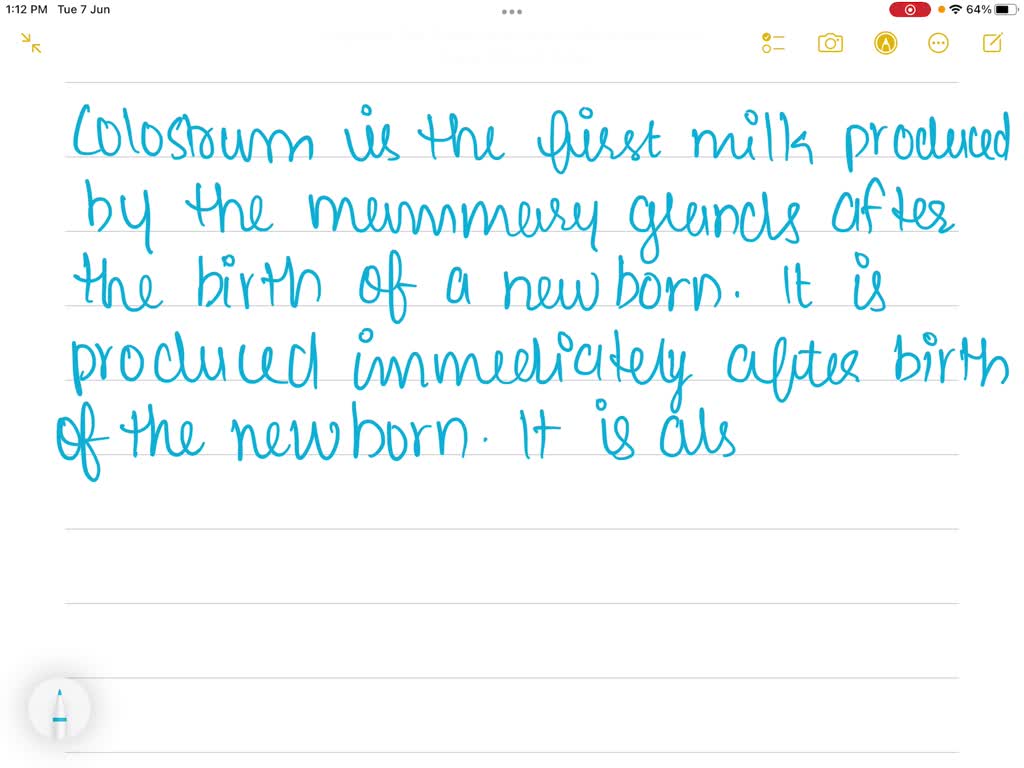 1:12 PM Tue 7 Jun
64%
Colostrum is the first milk produced
by the mammary glands after
the birth of a newborn. It is
produced immediately after birth
of the newborn. It is als